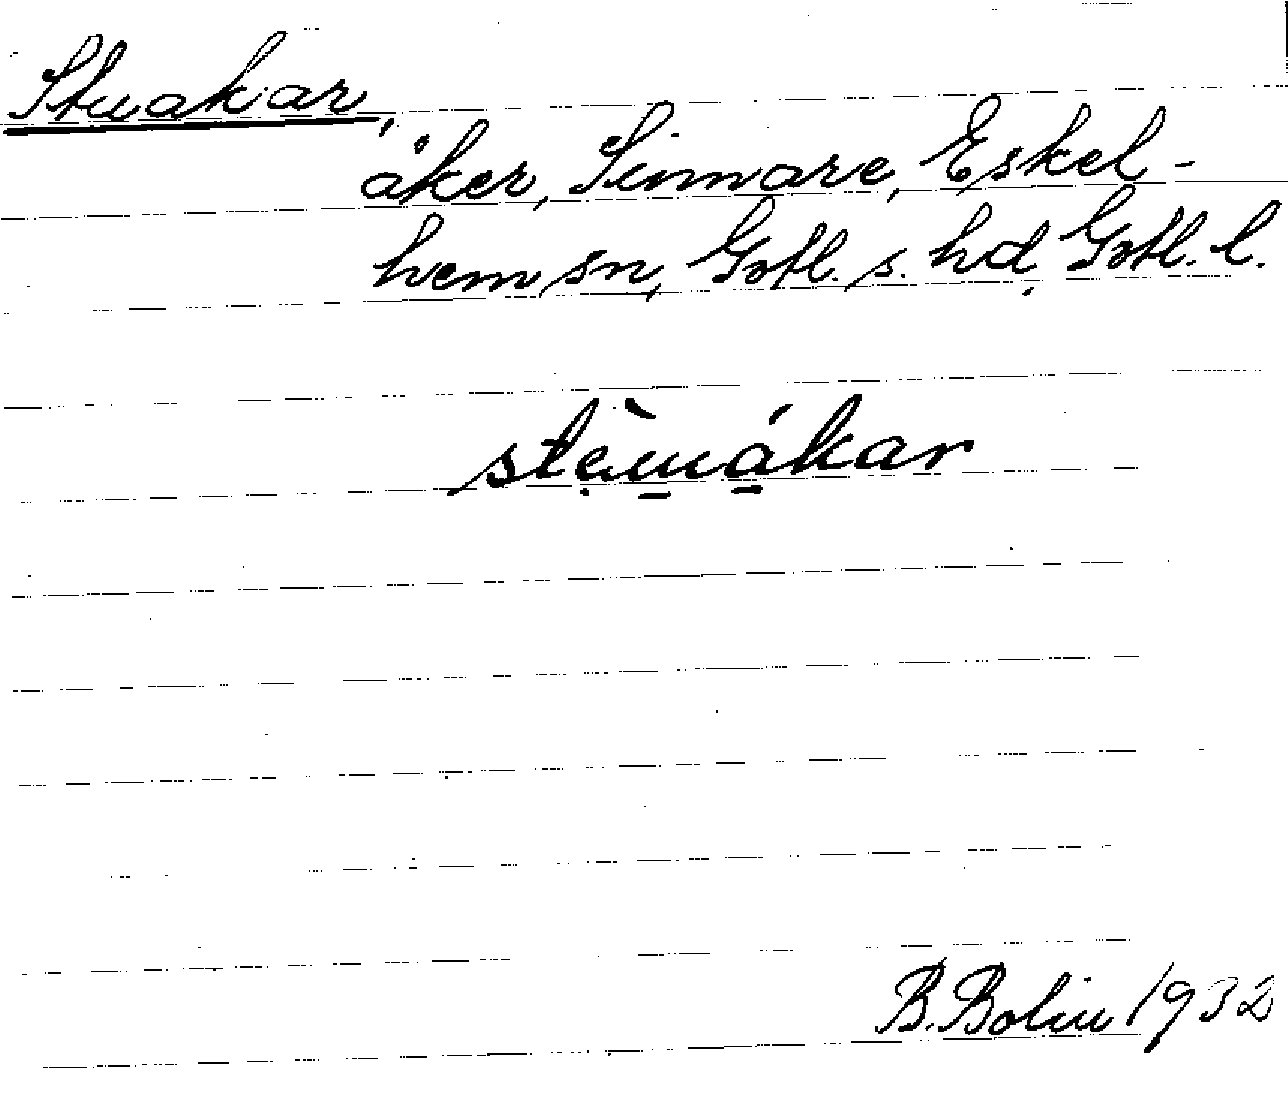 Stuakar,
åker, Simmare, Eskel-
hem sn, Gotl. s. hd, Gotl. l.
B. Bolin 1932